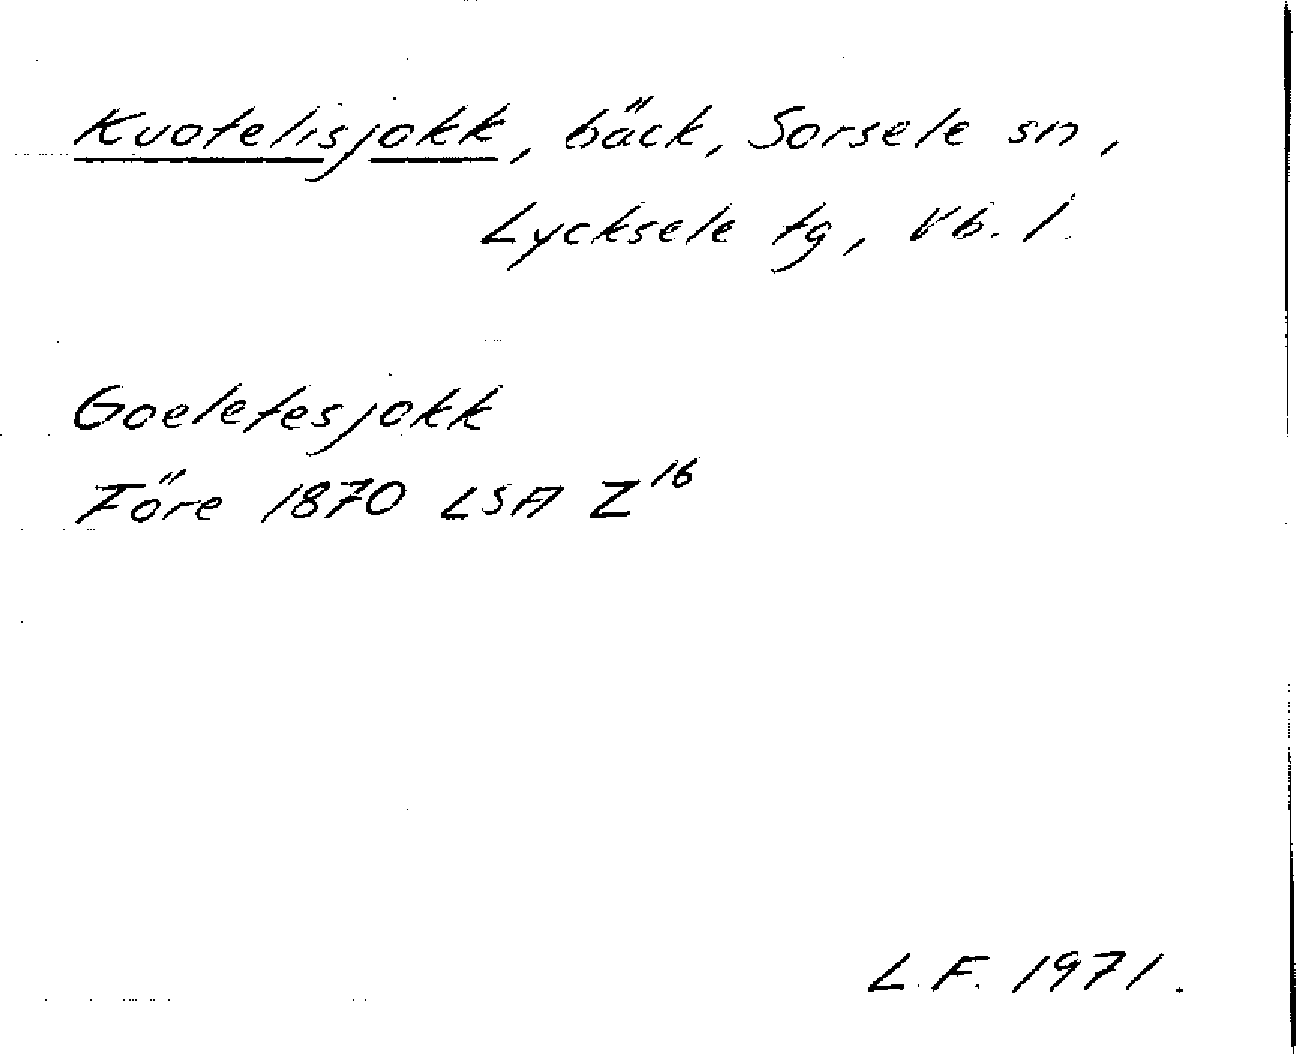 Kuotelisjokk, bäck, Sorsele sn,
Lycksele tg, Vb. l.
Goeletesjokk
Före 1870 LSA Z16
L.F. 1971.